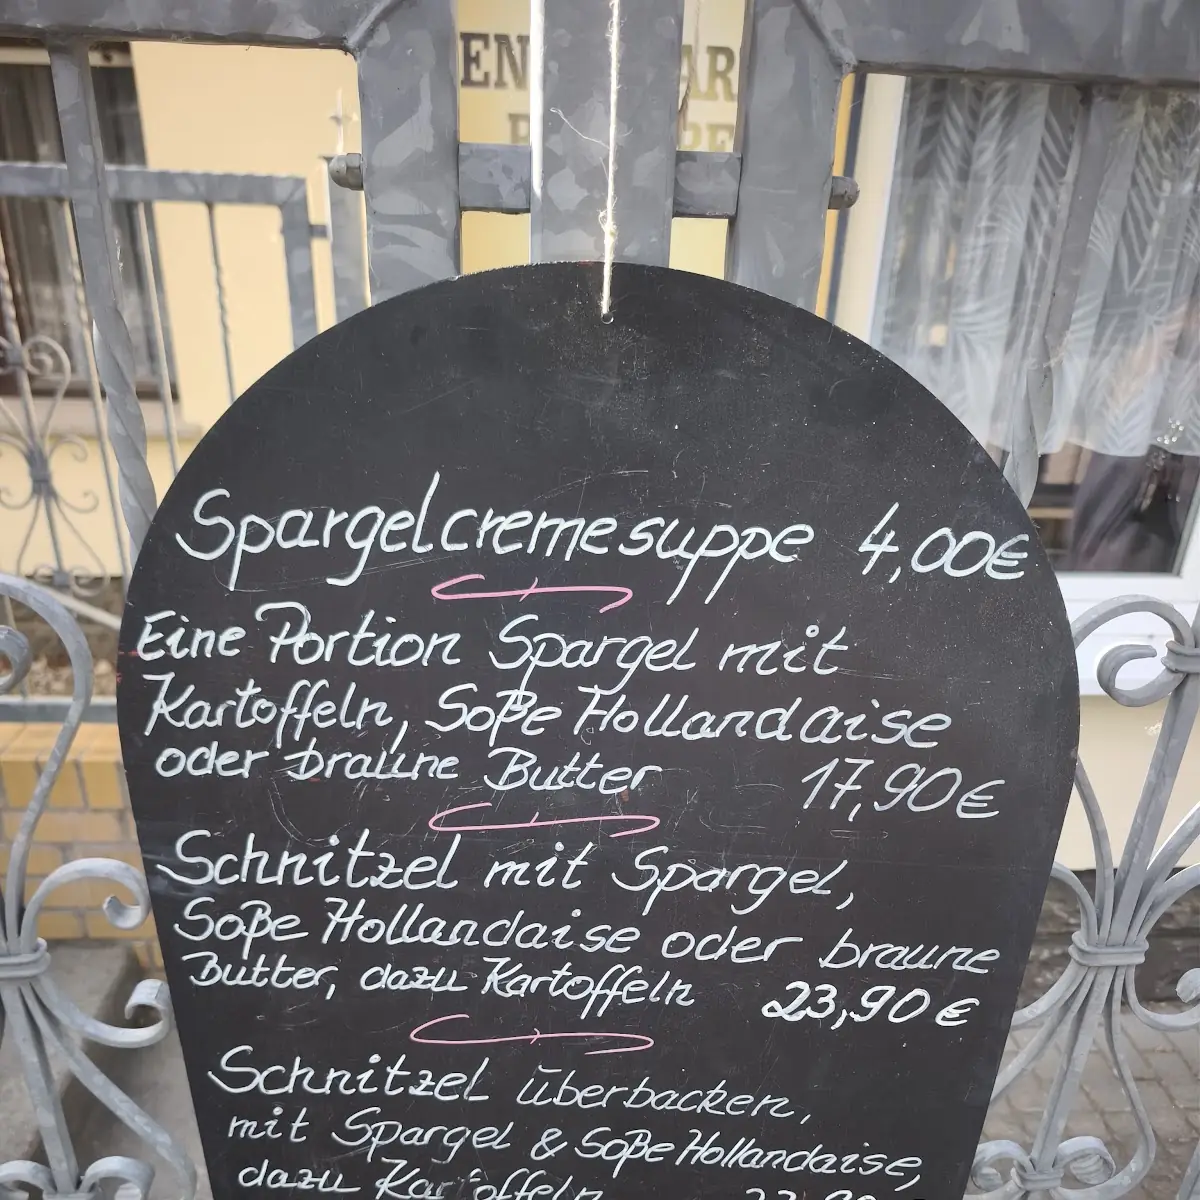 Spargelcremesuppe 4,00€
Eine Portion Spargel mit
Kartoffeln, Soße Hollandaise
oder braune Butter 17,90€
Schnitzel mit Spargel,
Soße Hollandaise oder braune
Butter, dazu Kartoffeln 23,90€
Schnitzel überbacken,
mit Spargel & Soße Hollandaise,
dazu Kartoffeln